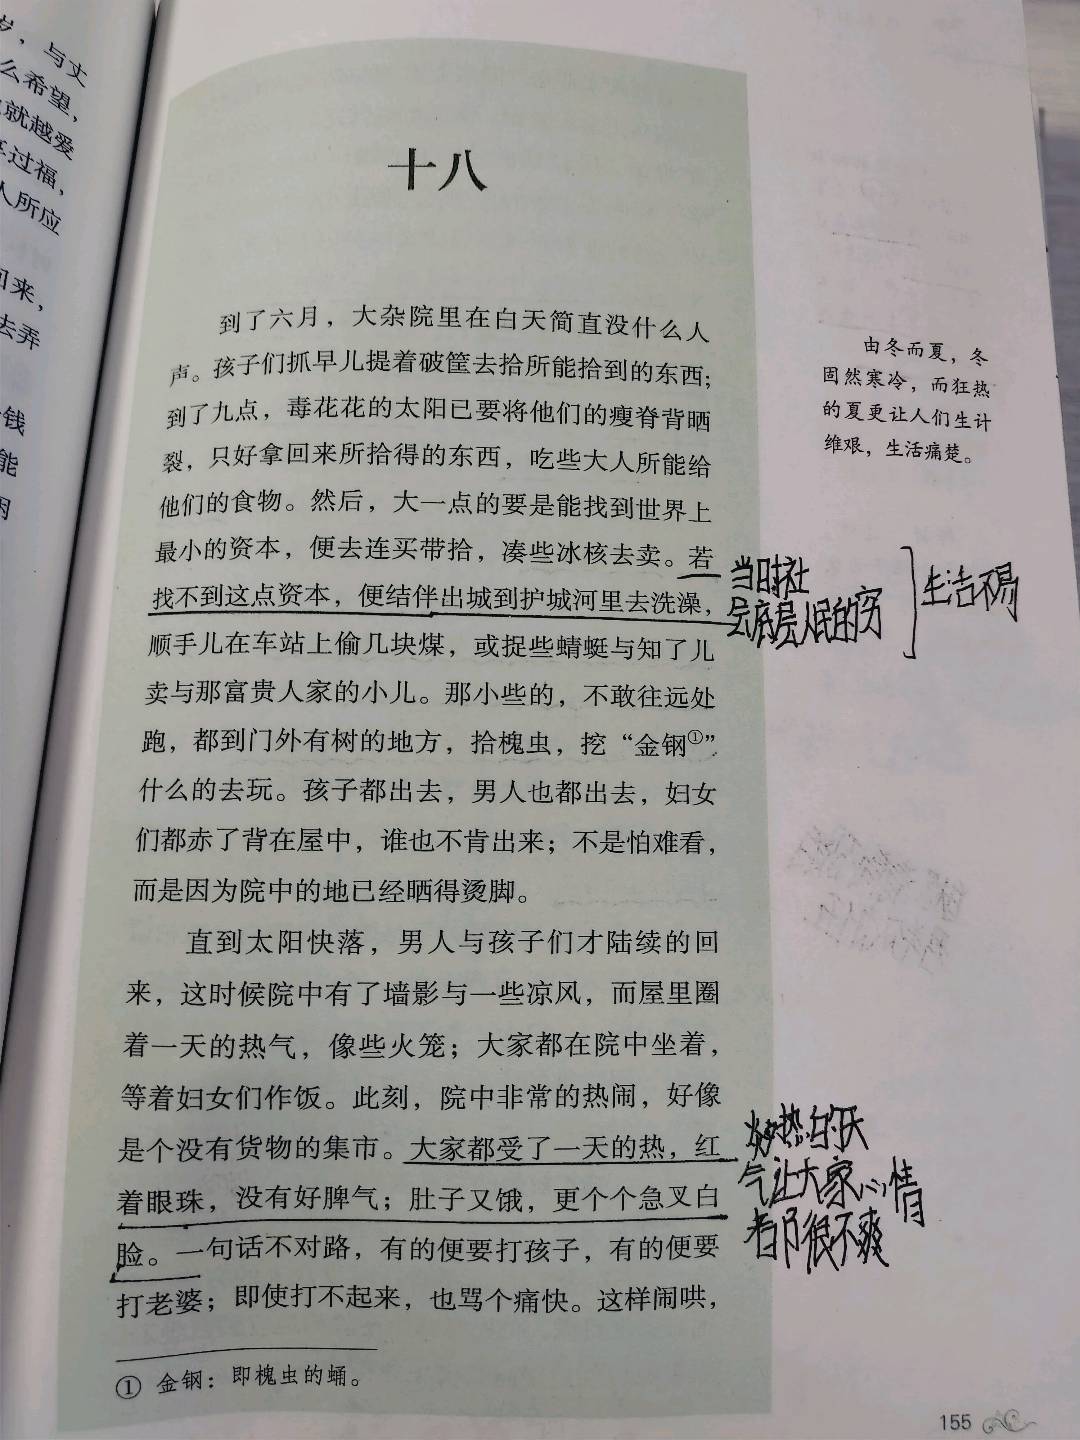 岁，与丈
么希望，
就越爱
过福，
人所应
回来，
去弄
钱
能
十八
到了六月，大杂院里在白天简直没什么人
声。孩子们抓早儿提着破筐去拾所能拾到的东西；
到了九点，毒花花的太阳已要将他们的瘦脊背晒
裂，只好拿回来所拾得的东西，吃些大人所能给
他们的食物。然后，大一点的要是能找到世界上
最小的资本，便去连买带拾，凑些冰核去卖。若
找不到这点资本，便结伴出城到护城河里去洗澡，
顺手儿在车站上偷几块煤，或捉些蜻蜓与知了儿
卖与那富贵人家的小儿。那小些的，不敢往远处
跑，都到门外有树的地方，拾槐虫，挖“金钢①”
什么的去玩。孩子都出去，男人也都出去，妇女
们都赤了背在屋中，谁也不肯出来；不是怕难看，
而是因为院中的地已经晒得烫脚。
直到太阳快落，男人与孩子们才陆续的回
来，这时候院中有了墙影与一些凉风，而屋里圈
着一天的热气，像些火笼；大家都在院中坐着，
等着妇女们作饭。此刻，院中非常的热闹，好像
是个没有货物的集市。大家都受了一天的热，红
着眼珠，没有好脾气；肚子又饿，更个个急叉白
脸。一句话不对路，有的便要打孩子，有的便要
打老婆；即使打不起来，也骂个痛快。这样闹哄，
① 金钢：即槐虫的蛹。
由冬而夏，冬
固然寒冷，而狂热
的夏更让人们生计
维艰，生活痛楚。
当时社
会底层人民的穷
生活不易
炎热的天
气让大家心情
都很不爽
155